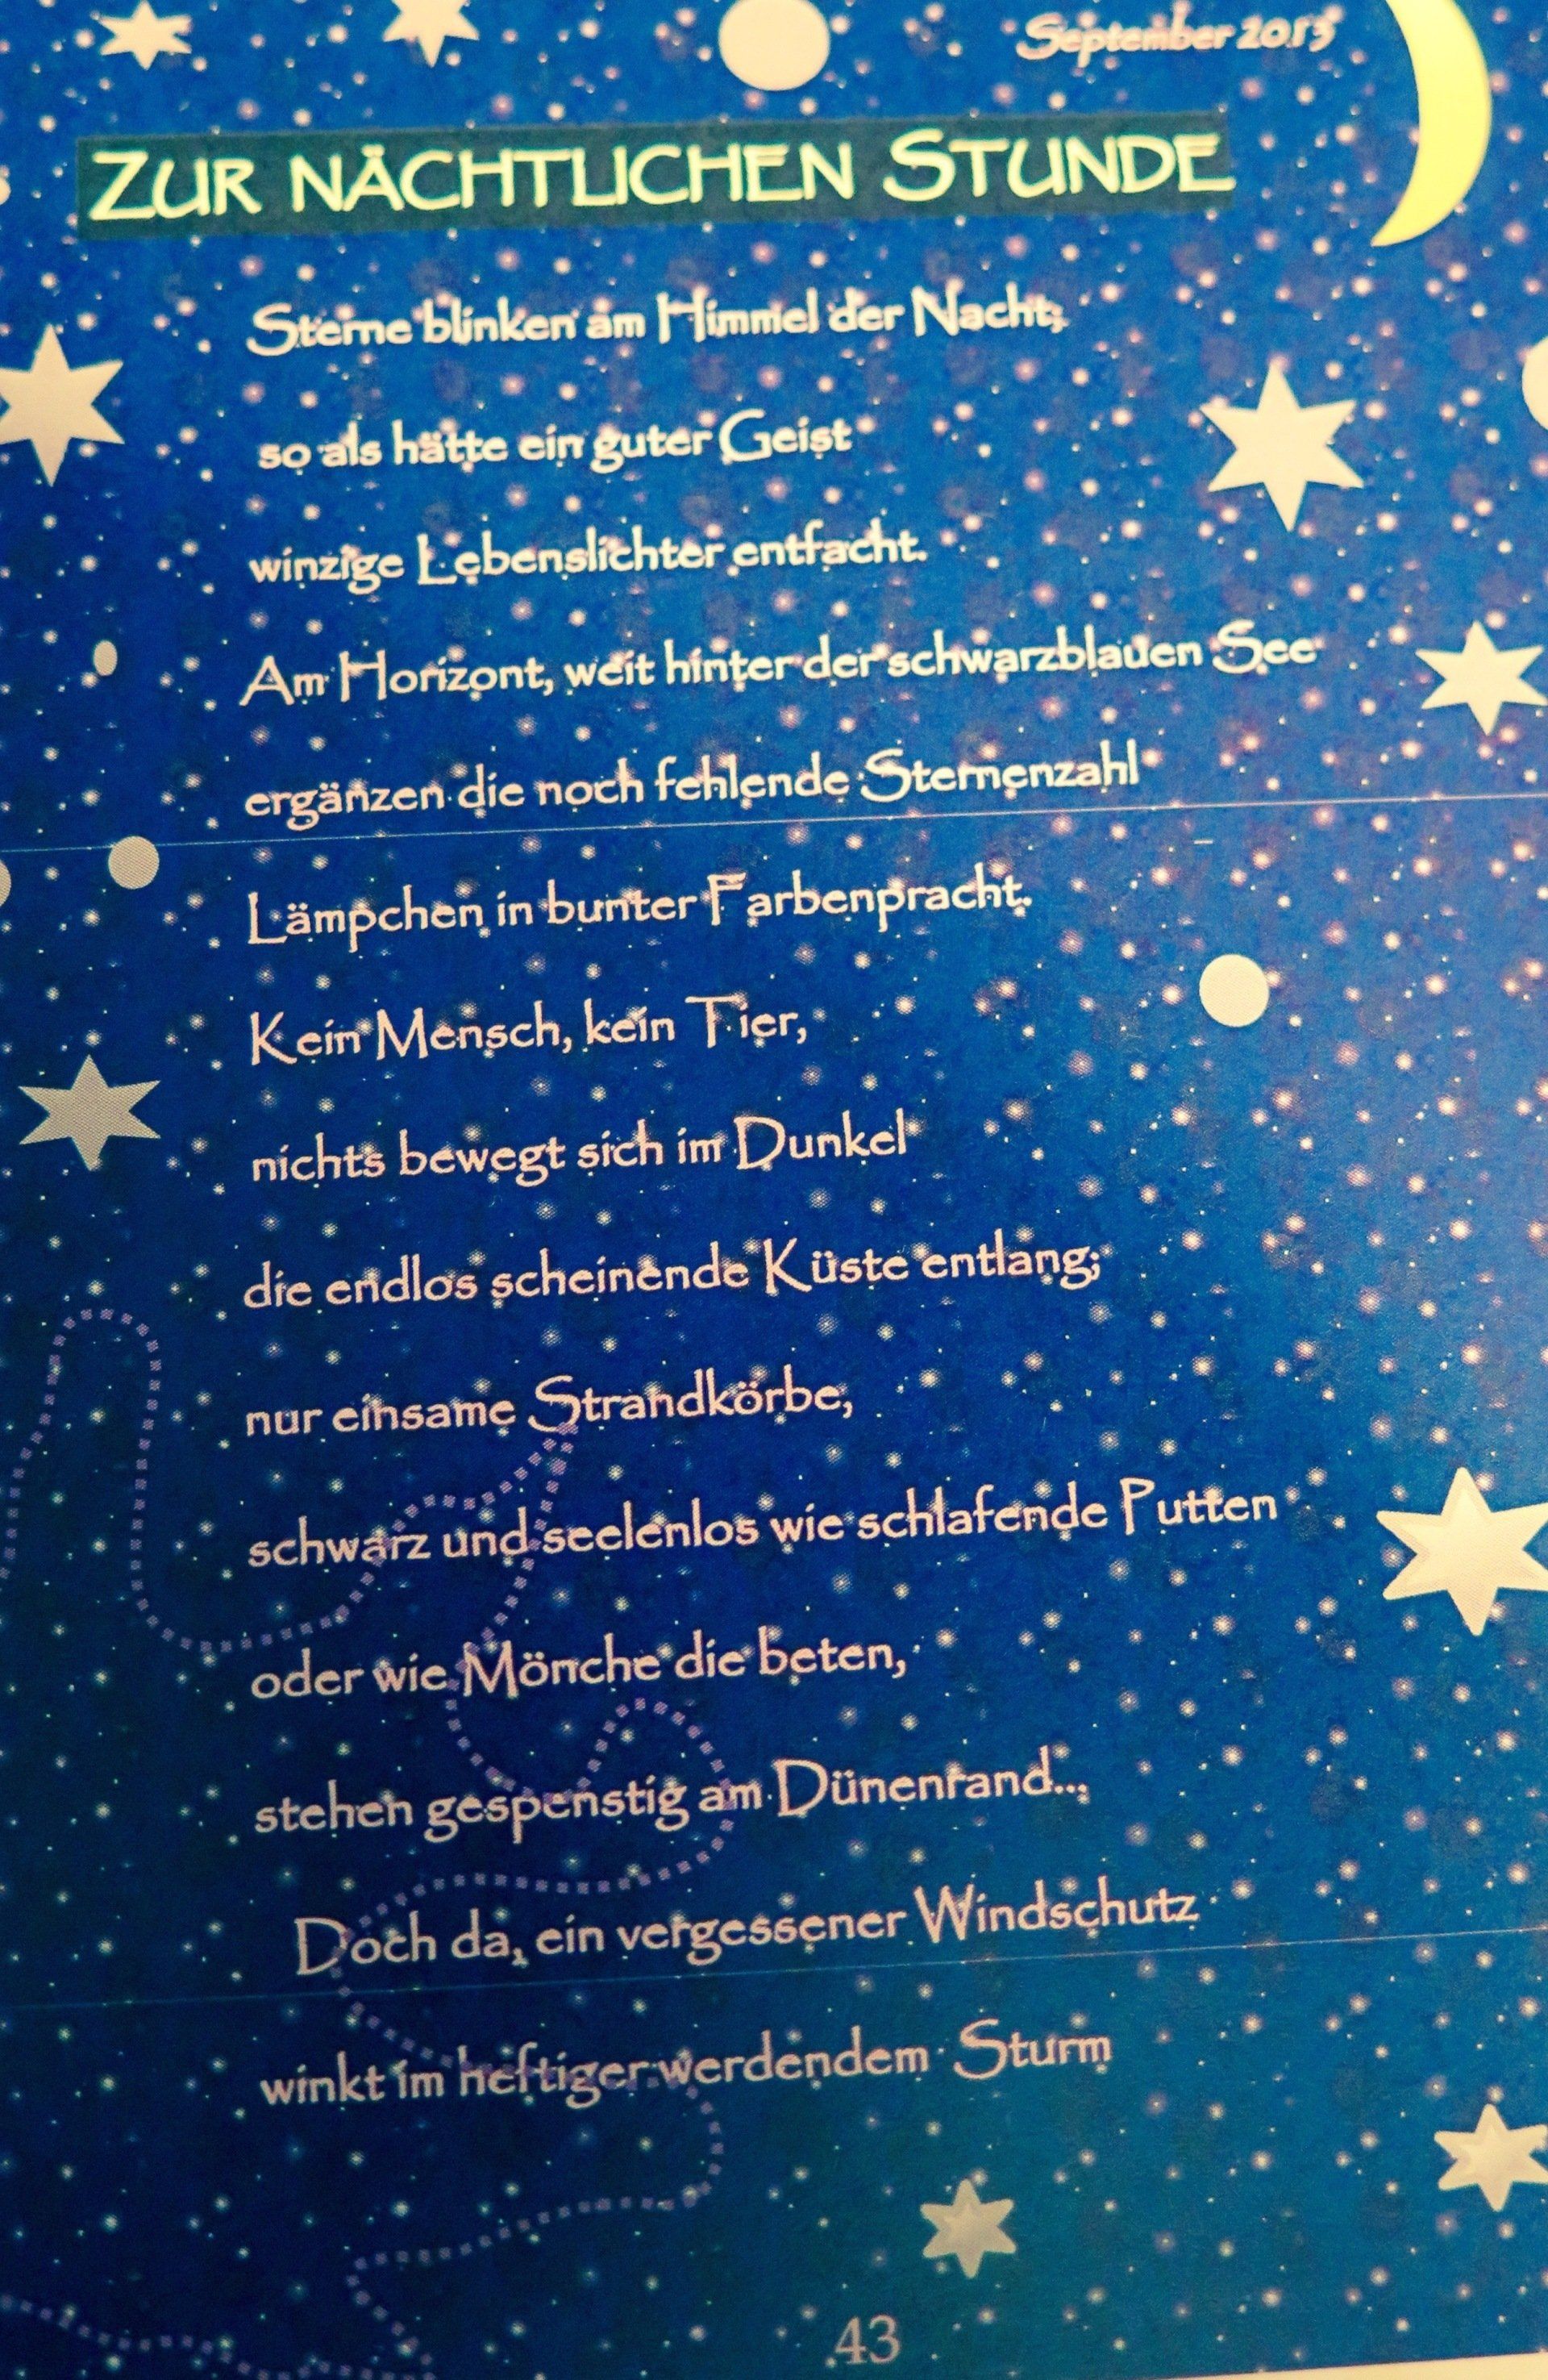 September 2013
ZUR NÄCHTLICHEN STUNDE
Sterne blinken am Himmel der Nacht,
so als hätte ein guter Geist
winzige Lebenslichter entfacht.
Am Horizont, weit hinter der schwarzblauen See
ergänzen die noch fehlende Sternenzahl
Lämpchen in bunter Farbenpracht.
Kein Mensch, kein Tier,
nichts bewegt sich im Dunkel
die endlos scheinende Küste entlang;
nur einsame Strandkörbe,
schwarz und seelenlos wie schlafende Putten
oder wie Mönche die beten,
stehen gespenstig am Dünenrand...
Doch da, ein vergessener Windschutz
winkt im heftiger werdendem Sturm
43